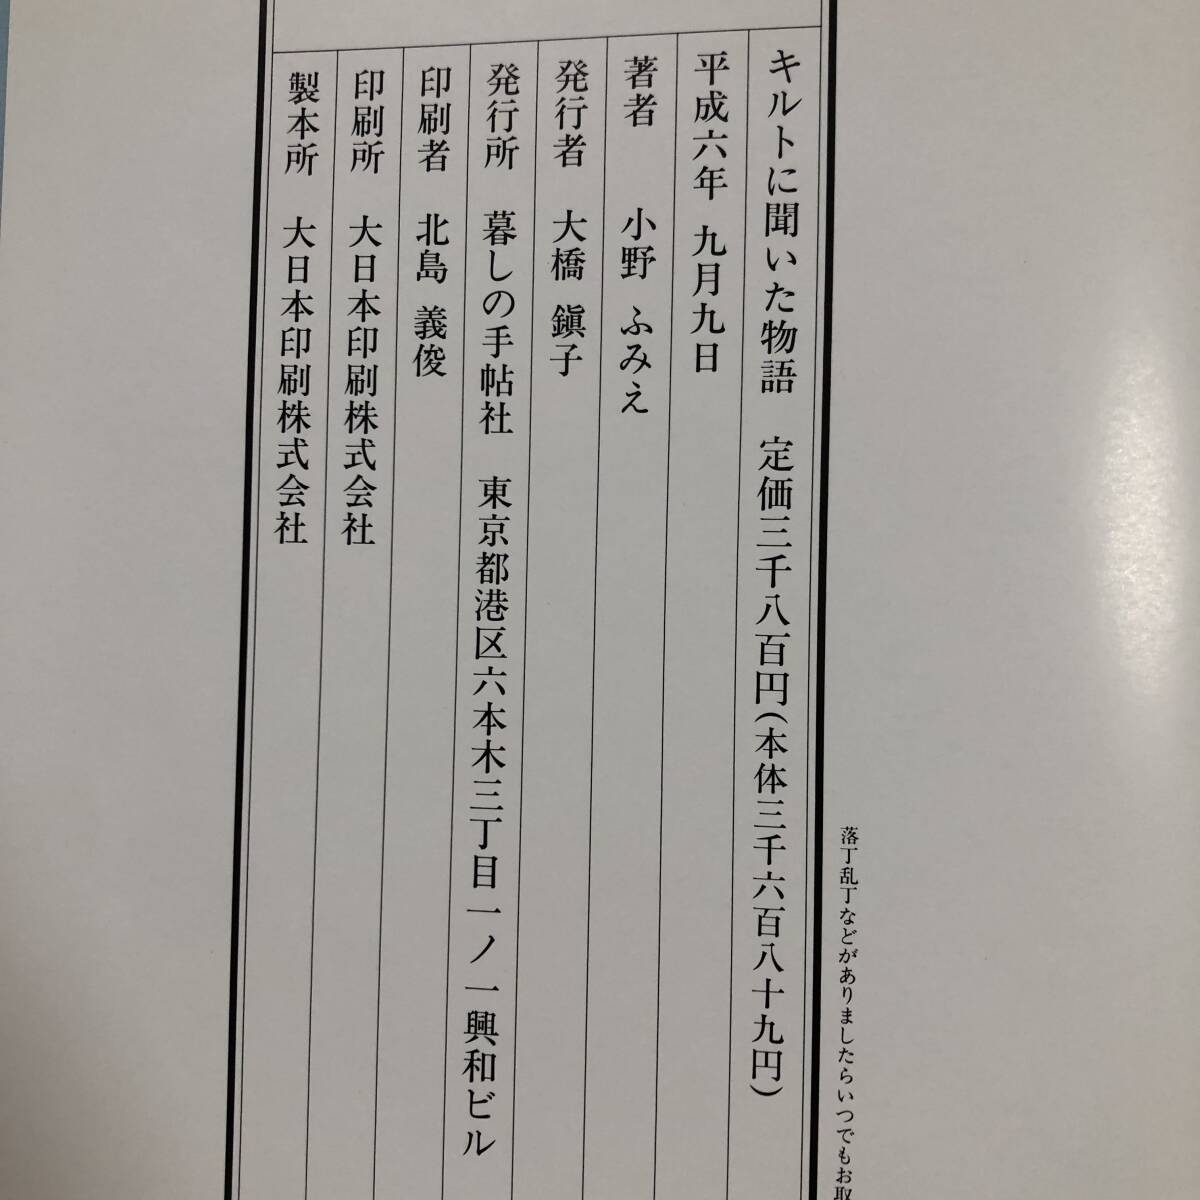 落丁乱丁などがありましたらいつでもお取
キルトに聞いた物語 定価三千八百円(本体三千六百八十九円)
平成六年 九月九日
著者 小野 ふみえ
発行者 大橋 鎭子
発行所 暮しの手帖社 東京都港区六本木三丁目一ノ一興和ビル
印刷者 北島 義俊
印刷所 大日本印刷株式会社
製本所 大日本印刷株式会社